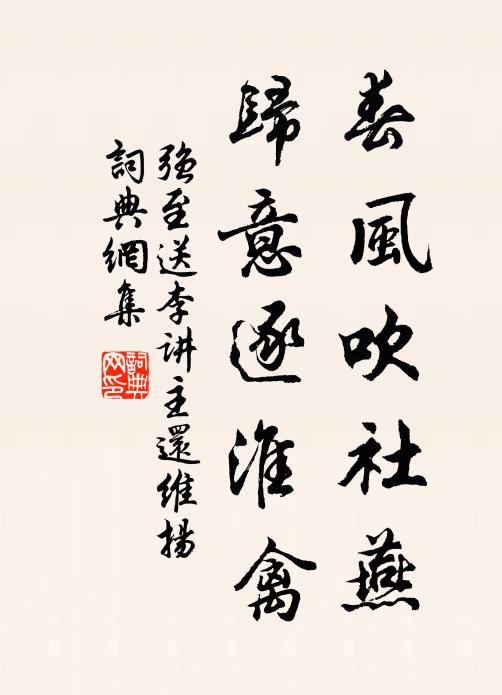 春風吹社燕
歸意逐淮禽
強至送李講主還維揚
詞典網集
詞典網印